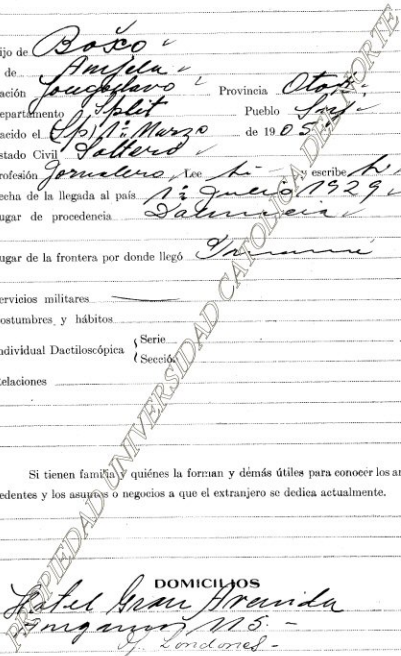 ijo de Bosko
de Anjela
ación Yougoslavo Provincia Otok
epartamento Split Pueblo Sinj
acido el (Sp) 1º Marzo de 1905
stado Civil Soltero
rofesión Jornalero Lee si y escribe si
echa de la llegada al país 1º Julio 1929
ugar de procedencia Dalmacia
ugar de la frontera por donde llegó
ervicios militares
ostumbres y hábitos
ndividual Dactiloscópica { Serie
Sección
elaciones
Si tienen familia y quiénes la forman y démás útiles para conocer los an
edentes y los asuntos o negocios a que el extranjero se dedica actualmente.
DOMICILIOS
Hotel Gran Avenida
Angamos 115 -
Londones -
PROPIEDAD UNIVERSIDAD CATOLICA DEL NORTE